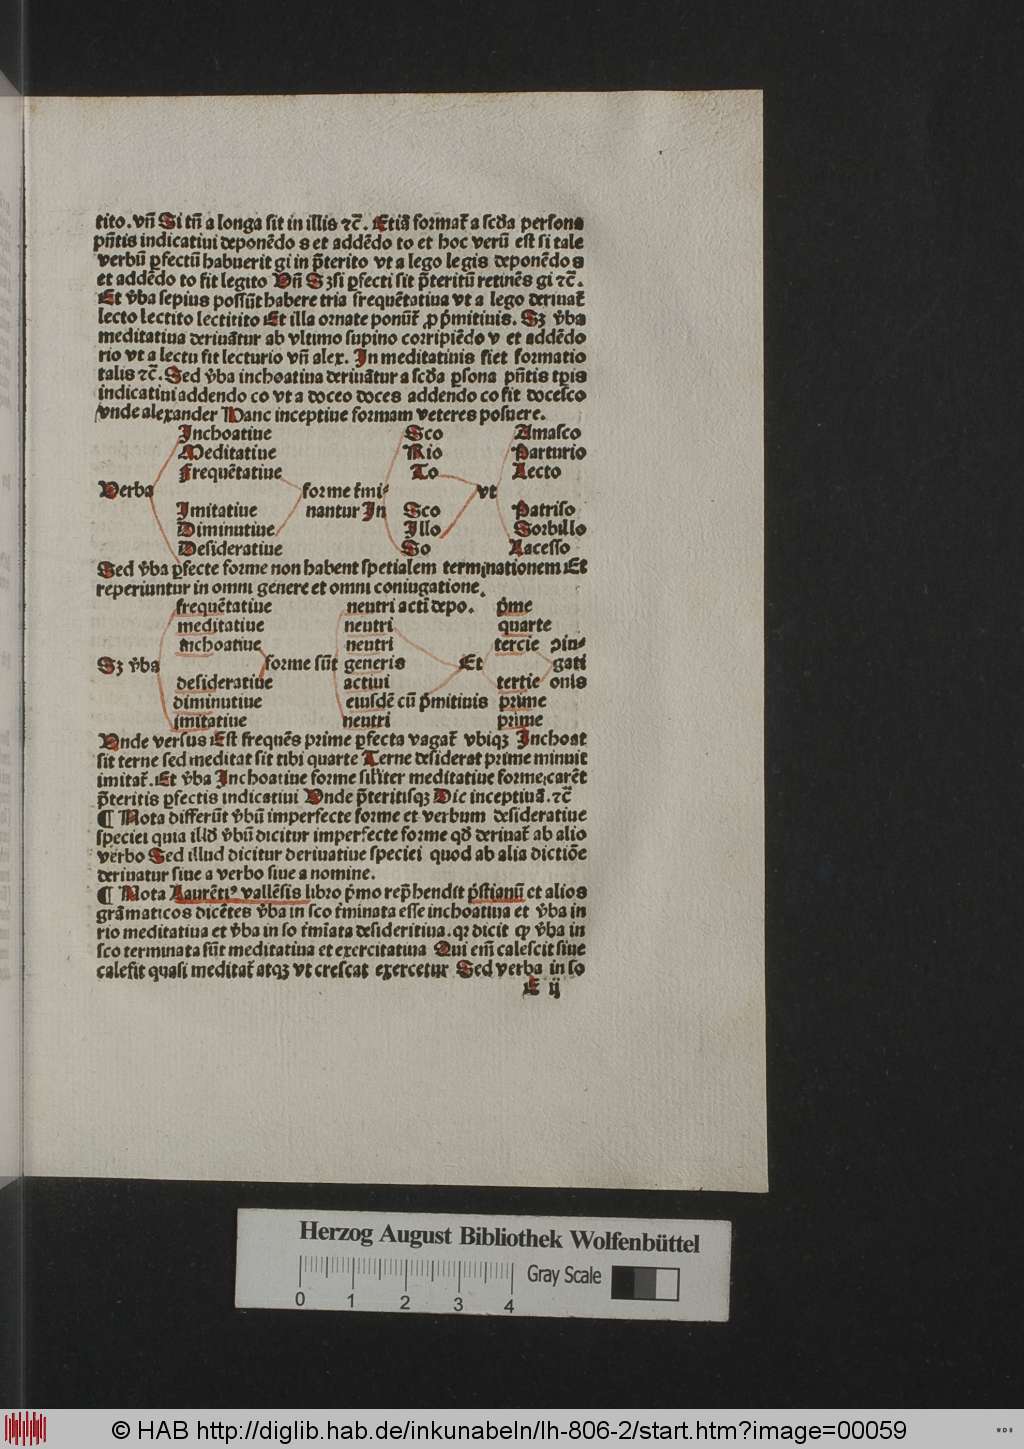 tito. vn̄ Si tn̄ a longa sit in illis ⁊c̄. Etiā format᷑ a scd̄a persona
pn̄tis indicatiui deponēdo s et addēdo to et hoc verū est si tale
verbū ꝑfectū habuerit gi in p̄terito vt a lego legis deponēdo s
et addēdo to fit legito Vn̄ Sꝫ si ꝑfecti sit p̄teritū retinēs gi ⁊c̄.
Et v̄ba sepius possūt habere tria frequētatiua vt a lego deriuat᷑
lecto lectito lectitito Et illa ornate ponūt᷑ ꝓ p̄mitiuis. Sꝫ v̄ba
meditatiua deriuātur ab vltimo supino corripiēdo v et addēdo
rio vt a lectu fit lecturio vn̄ alex. In meditatiuis fiet formatio
talis ⁊c̄. Sed v̄ba inchoatiua deriuātur a scd̄a ꝑsona pn̄tis tp̄is
indicatiui addendo co vt a doceo doces addendo co fit docesco
vnde alexander Hanc inceptiue formam veteres posuere.
Inchoatiue Sco Amasco
Meditatiue Rio Parturio
Frequētatiue To Lecto
Verba forme t̄mi⸗ vt
Imitatiue nantur In Sco Patriso
Diminutiue Illo Sorbillo
Desideratiue So Lacesso
Sed v̄ba ꝑfecte forme non habent spetialem terminationem Et
reperiuntur in omni genere et omni coniugatione.
frequētatiue neutri acti depo. p̄me
meditatiue neutri quarte
inchoatiue neutri tercie ↄin⸗
Sꝫ v̄ba forme sūt generis Et gati
desideratiue actiui tertie onis
diminutiue eiusdē cū p̄mitiuis prime
imitatiue neutri prime
Vnde versus Est frequēs prime ꝑfecta vagat᷑ vbiqꝫ Inchoat
sit terne sed meditat sit tibi quarte Terne desiderat prime minuit
imitat᷑. Et v̄ba Inchoatiue forme siliter meditatiue forme carēt
p̄teritis ꝑfectis indicatiui Vnde p̄teritisqꝫ Dic inceptiuā. ⁊c̄
¶ Nota differūt v̄bū imperfecte forme et verbum desideratiue
speciei quia illd̄ v̄bū dicitur imperfecte forme qd̄ deriuat᷑ ab alio
verbo Sed illud dicitur deriuatiue speciei quod ab alia dictiōe
deriuatur siue a verbo siue a nomine.
¶ Nota Laurētiꝰ vallēsis libro p̄mo rep̄hendit p̄stianū et alios
grāmaticos dicētes v̄ba in sco t̄minata esse inchoatiua et v̄ba in
rio meditatiua et v̄ba in so t̄mīata desideritiua. qꝛ dicit ꝙ v̄ba in
sco terminata sūt meditatiua et exercitatiua Qui em̄ calescit siue
calefit quasi meditat᷑ atqꝫ vt crescat exercetur Sed verba in so
E ij
Herzog August Bibliothek Wolfenbüttel
Gray Scale
0 1 2 3 4
© HAB http://diglib.hab.de/inkunabeln/lh-806-2/start.htm?image=00059